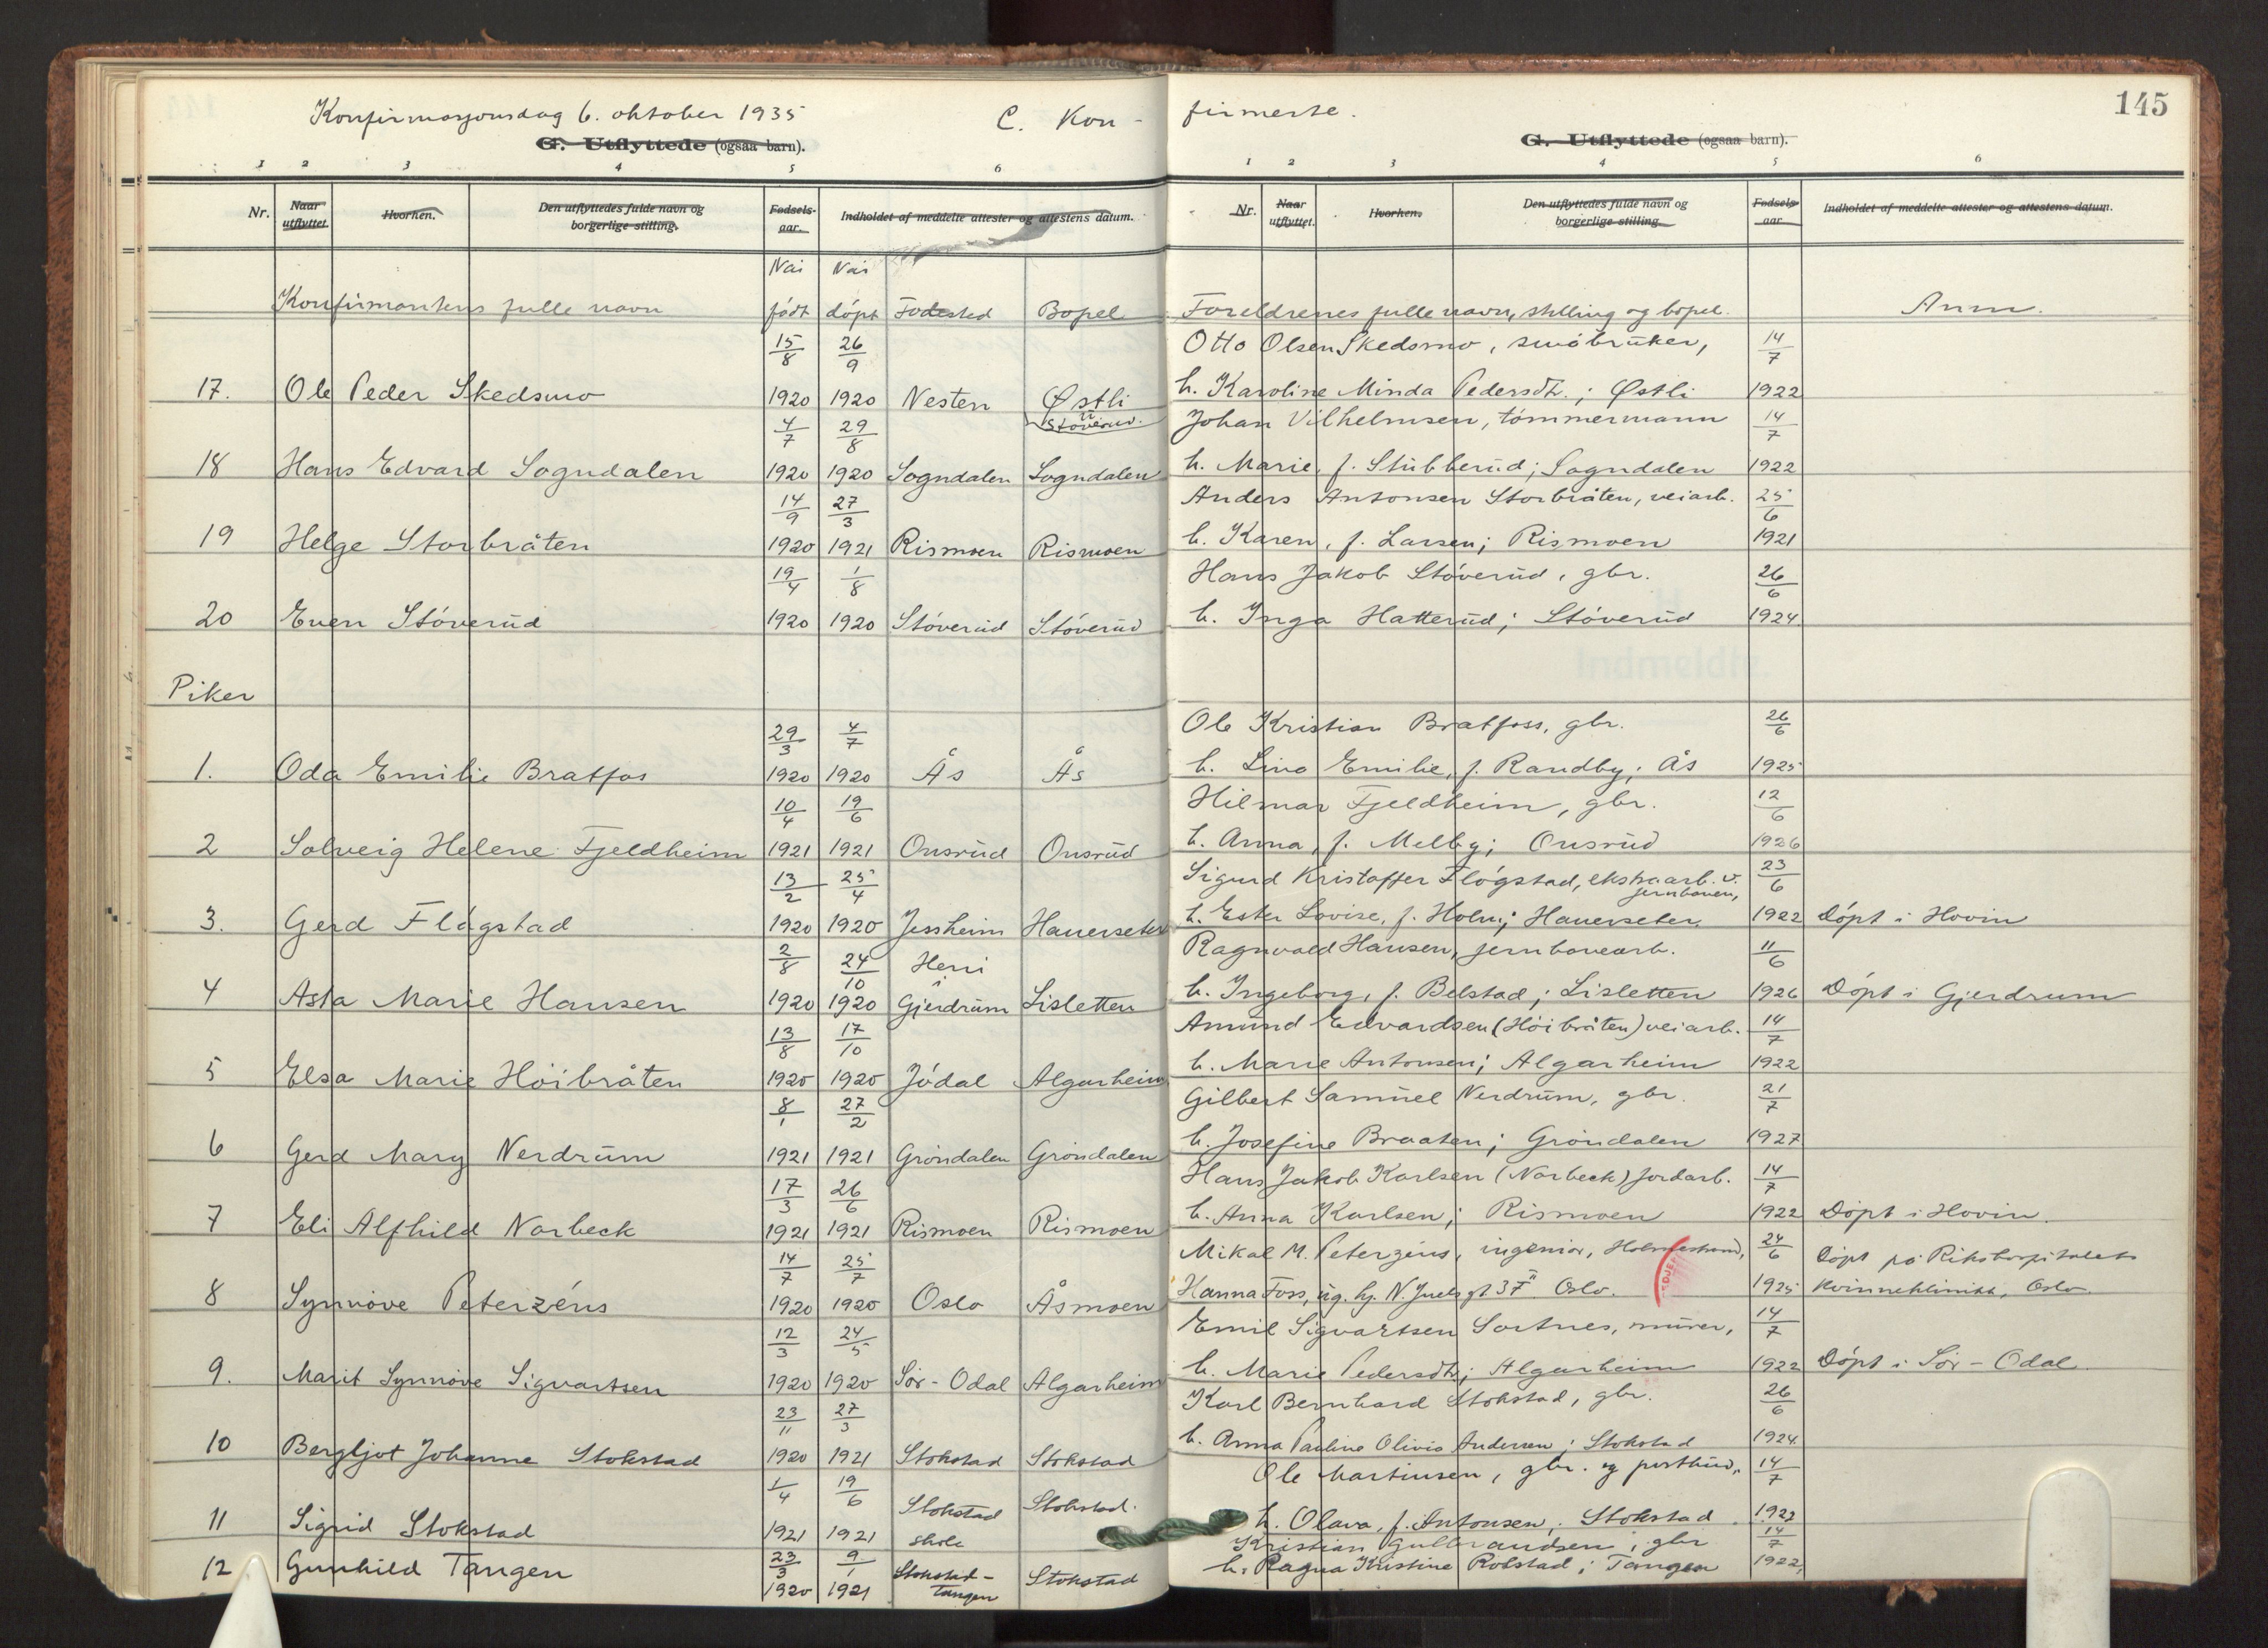 Konfirmasjonsdag 6. oktober 1935 C. Kon-
firmerte. 145
G. Utflyttede (ogsaa barn).
1 2 3 4 5 6
Nr. Naar utflyttet. Hvorhen. Den utflyttedes fulde navn og borgerlige stilling. Fødsels-aar. Indholdet af meddelte attester og attestens datum.
G. Utflyttede (ogsaa barn).
1 2 3 4 5 6
Nr. Naar utflyttet. Hvorhen. Den utflyttedes fulde navn og borgerlige stilling. Fødsels-aar. Indholdet af meddelte attester og attestens datum.
Konfirmantens fulle navn Når født Når døpt Fødested Bopel Foreldrenes fulle navn, stilling og bopel. Anm.
15/8 26/9 Otto Olsen Skedsmo, småbruker, 14/7
17. Ole Peder Skedsmo 1920 1920 Nesten Østli u. Støverud. h. Karoline Minda Pedersdt.; Østli 1922
4/7 29/8 Johan Vilhelmsen, tømmermann 14/7
18 Hans Edvard Sogndalen 1920 1920 Sogndalen Sogndalen h. Marie, f. Stubberud; Sogndalen 1922
14/9 27/3 Anders Antonsen Storbråten, veiarb. 25/6
19 Helge Storbråten 1920 1921 Rismoen Rismoen h. Karen, f. Larsen; Rismoen 1921
19/4 1/8 Hans Jakob Støverud, gbr. 26/6
20 Even Støverud 1920 1920 Støverud Støverud h. Inga Hatterud; Støverud 1924
Piker
29/3 4/7 Ole Kristian Bratfoss, gbr. 26/6
1. Oda Emilie Bratfos 1920 1920 Ås Ås h. Lina Emilie, f. Randby; Ås 1925
10/4 19/6 Hilmar Fjeldheim, gbr. 12/6
2 Solveig Helene Fjeldheim 1921 1921 Onsrud Onsrud h. Anna, f. Melby; Onsrud 1926
13/2 25/4 Sigurd Kristoffer Fløgstad, ekstraarb. v. jernbanen, 23/6
3. Gerd Fløgstad 1920 1920 Jessheim Hauerseter h. Ester Lovise, f. Holm; Hauerseter. 1922 Døpt i Hovin
2/8 24/10 Heni i Ragnvald Hansen, jernbanearb. 11/6
4 Asta Marie Hansen 1920 1920 Gjerdrum Lisletten h. Ingeborg, f. Belstad; Lisletten 1926 Døpt i Gjerdrum
13/8 17/10 Amund Edvardsen (Høibråten) veiarb. 14/7
5 Elsa Marie Høibråten 1920 1920 Jødal Algarheim h. Marie Antonsen; Algarheim 1922
8/1 27/2 Gilbert Samuel Nerdrum, gbr. 21/7
6 Gerd Mary Nerdrum 1921 1921 Grøndalen Grøndalen h. Josefine Braaten; Grøndalen 1927
17/3 26/6 Hans Jakob Karlsen (Norbeck) jordarb. 14/7
7 Eli Alfhild Norbeck 1921 1921 Rismoen Rismoen h. Anna Karlsen; Rismoen 1922 Døpt i Hovin.
14/7 25/7 Mikal M. Peterzéns, ingeniør, Holmestrand, 24/6 Døpt på Rikshospitalets
8 Synnøve Peterzéns 1920 1920 Oslo Åsmoen Hanna Foss, ug. hj. N. Juels gt 3 F II Oslo. 1925 Kvinneklinikk, Oslo
12/3 24/5 Emil Sigvartsen Sortnes, murer, 14/7
9. Marit Synnøve Sigvartsen 1920 1920 Sør-Odal Algarheim h. Marie Pedersdt.; Algarheim 1922 Døpt i Sør-Odal.
23/11 27/3 Karl Bernhard Stokstad, gbr. 26/6
10 Bergljot Johanne Stokstad 1920 1921 Stokstad Stokstad h. Anna Pauline Olivia Andersen; Stokstad 1924
1/4 19/6 Ole Martinsen, gbr. og postbud, 14/7
11 Sigrid Stokstad 1921 1921 Stokstad skole Stokstad. h. Olava, f. Antonsen; Stokstad 1922
23/3 9/1 Kristian Gulbrandsen, gbr 14/7
12 Gunhild Tangen 1920 1921 Stokstad-tangen Stokstad h. Ragna Kristine Rolstad; Tangen 1922